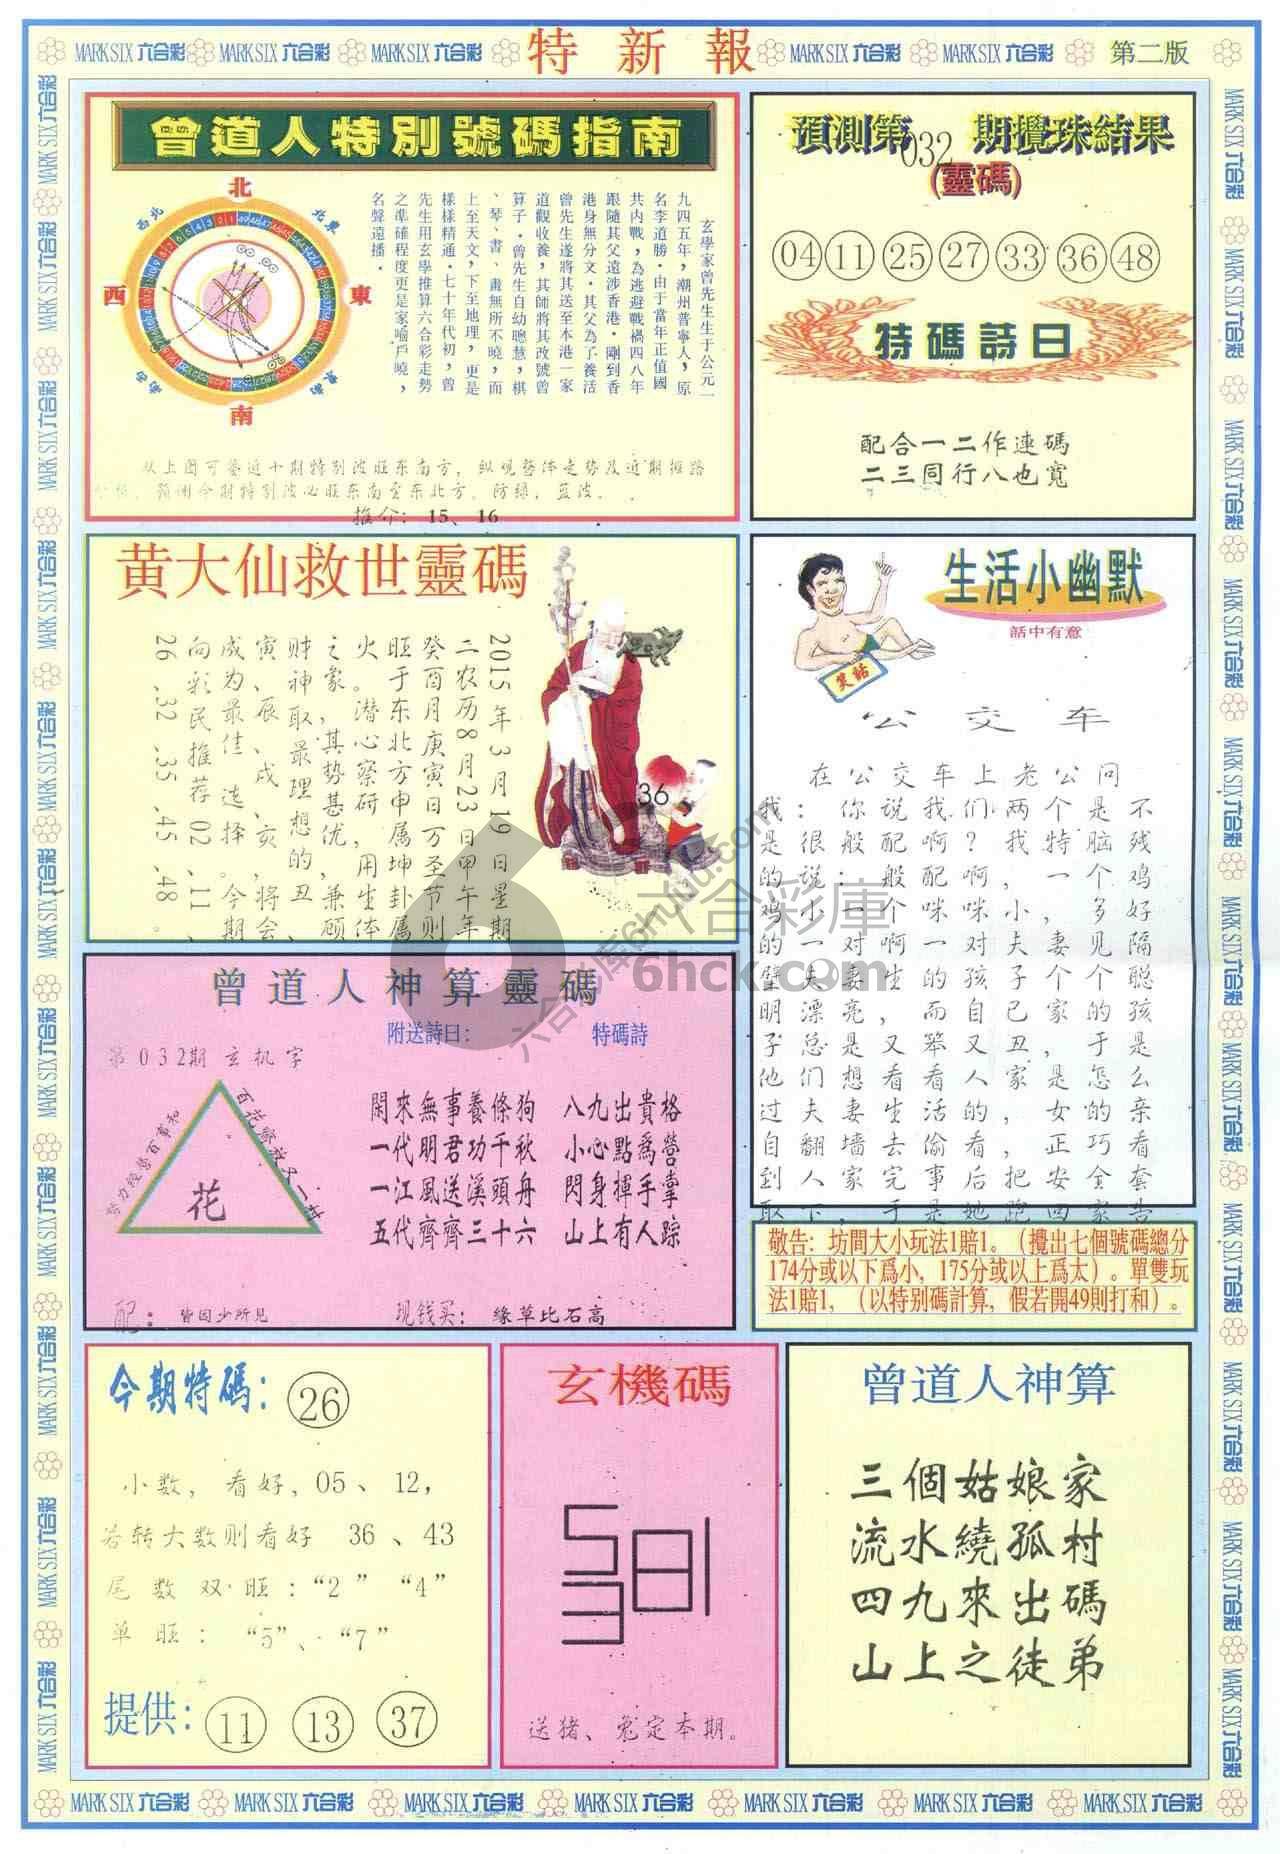 MARK SIX 六合彩 MARK SIX 六合彩 MARK SIX 六合彩 特新報 MARK SIX 六合彩 MARK SIX 六合彩 第二版
曾道人特別號碼指南
北
北東
東
南
西
西北
玄學家曾先生生于公元一
九四五年，潮州普寧人，原
名李道勝·由于當年正值國
共内戰，為逃避戰禍四八年
跟隨其父遠涉香港·剛到香
港身無分文·其父為了養活
曾先生遂將其送至本港一家
道觀收養，其師將其改號曾
算子·曾先生自幼聰慧，棋
、琴、書、畫無所不曉，而
上至天文，下至地理，更是
樣樣精通·七十年代初，曾
先生用玄學推算六合彩走勢
之準確程度更是家喻戶曉，
名聲遠播·
从上图可鉴近十期特别波旺东南方，纵观整体走势及近期摇路
预测今期特别波必旺东南至东北方。防绿，蓝波。
推介：15、16
預測第032期攪珠結果
(靈碼)
04 11 25 27 33 36 48
特碼詩曰
配合一二作連碼
二三同行八也寬
黄大仙救世靈碼
2015年3月19日星期
二农历8月23日甲午年
癸酉月庚寅日万圣节则
旺于东北方申属坤卦属
火。潜心察研，用生体
之象，其势甚优，兼顾
财神取最理想的丑、
寅、辰、戌、亥，将会
成为最佳选择。今期
向彩民推荐02、11、
26、32、35、45、48。
36
生活小幽默
話中有意
笑話
公交车
在公交车上老公问
我：你说我们两个是不
是很般配啊？我特脑残
的说：般配啊，一个鸡
鸡小一个咪咪小，多好
的一对啊一对夫妻见隔
壁夫妻生的孩子个个聪
明漂亮，而自已家的孩
子总是又笨又丑，于是
他们想看看人家是怎么
过夫妻生活的，女的亲
自翻墙去偷看，正巧看
到人家完事后把安全套
取下，于是她跑回家告
曾道人神算靈碼
附送詩曰：
特碼詩
第032期玄机字
努力經營百事和
百花齊放又一村
花
閑來無事養條狗
一代明君功千秋
一江風送溪頭舟
五代齊齊三十六
八九出貴格
小心點爲營
閃身揮手掌
山上有人踪
配：皆因少所見
现钱买：缘草比石高
敬告：坊間大小玩法1賠1。（攪出七個號碼總分
174分或以下爲小，175分或以上爲太）。單雙玩
法1賠1，（以特别碼計算，假若開49則打和）。
今期特碼：26
小数，看好，05、12，
若转大数则看好 36、43
尾数双旺：“2” “4”
单旺：“5”、“7”
提供：11 13 37
玄機碼
送猪、兔定本期。
曾道人神算
三個姑娘家
流水繞孤村
四九來出碼
山上之徒弟
六合彩庫
6hck.com
MARK SIX 六合彩 MARK SIX 六合彩 MARK SIX 六合彩 MARK SIX 六合彩 MARK SIX 六合彩 MARK SIX 六合彩 MARK SIX 六合彩